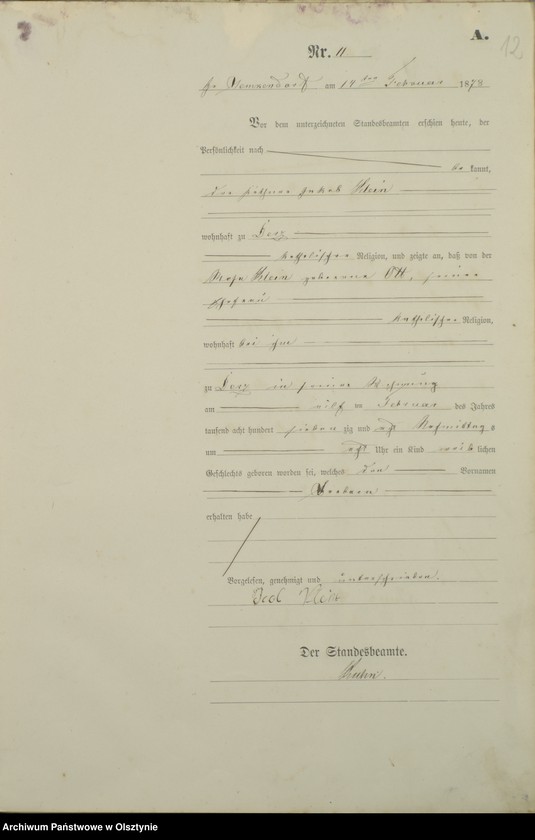 A.
12
Nr. 11
am 14ten Februar 1878
Vor dem unterzeichneten Standesbeamten erschien heute, der
Persönlichkeit nach
be kannt,
der Jakob Klein
wohnhaft zu Derz
katholischer Religion, und zeigte an, daß von der
Rosa Klein geborene Ott, seiner
Ehefrau
katholischer Religion,
wohnhaft bei ihm
zu Derz in seiner Wohnung
am elf ten Februar des Jahres
tausend acht hundert sieben zig und acht Nachmittags
um acht Uhr ein Kind weib lichen
Geschlechts geboren worden sei, welches den Vornamen
Barbara
erhalten habe
Vorgelesen, genehmigt und unterschrieben.
Klein
Der Standesbeamte.
Archiwum Państwowe w Olsztynie